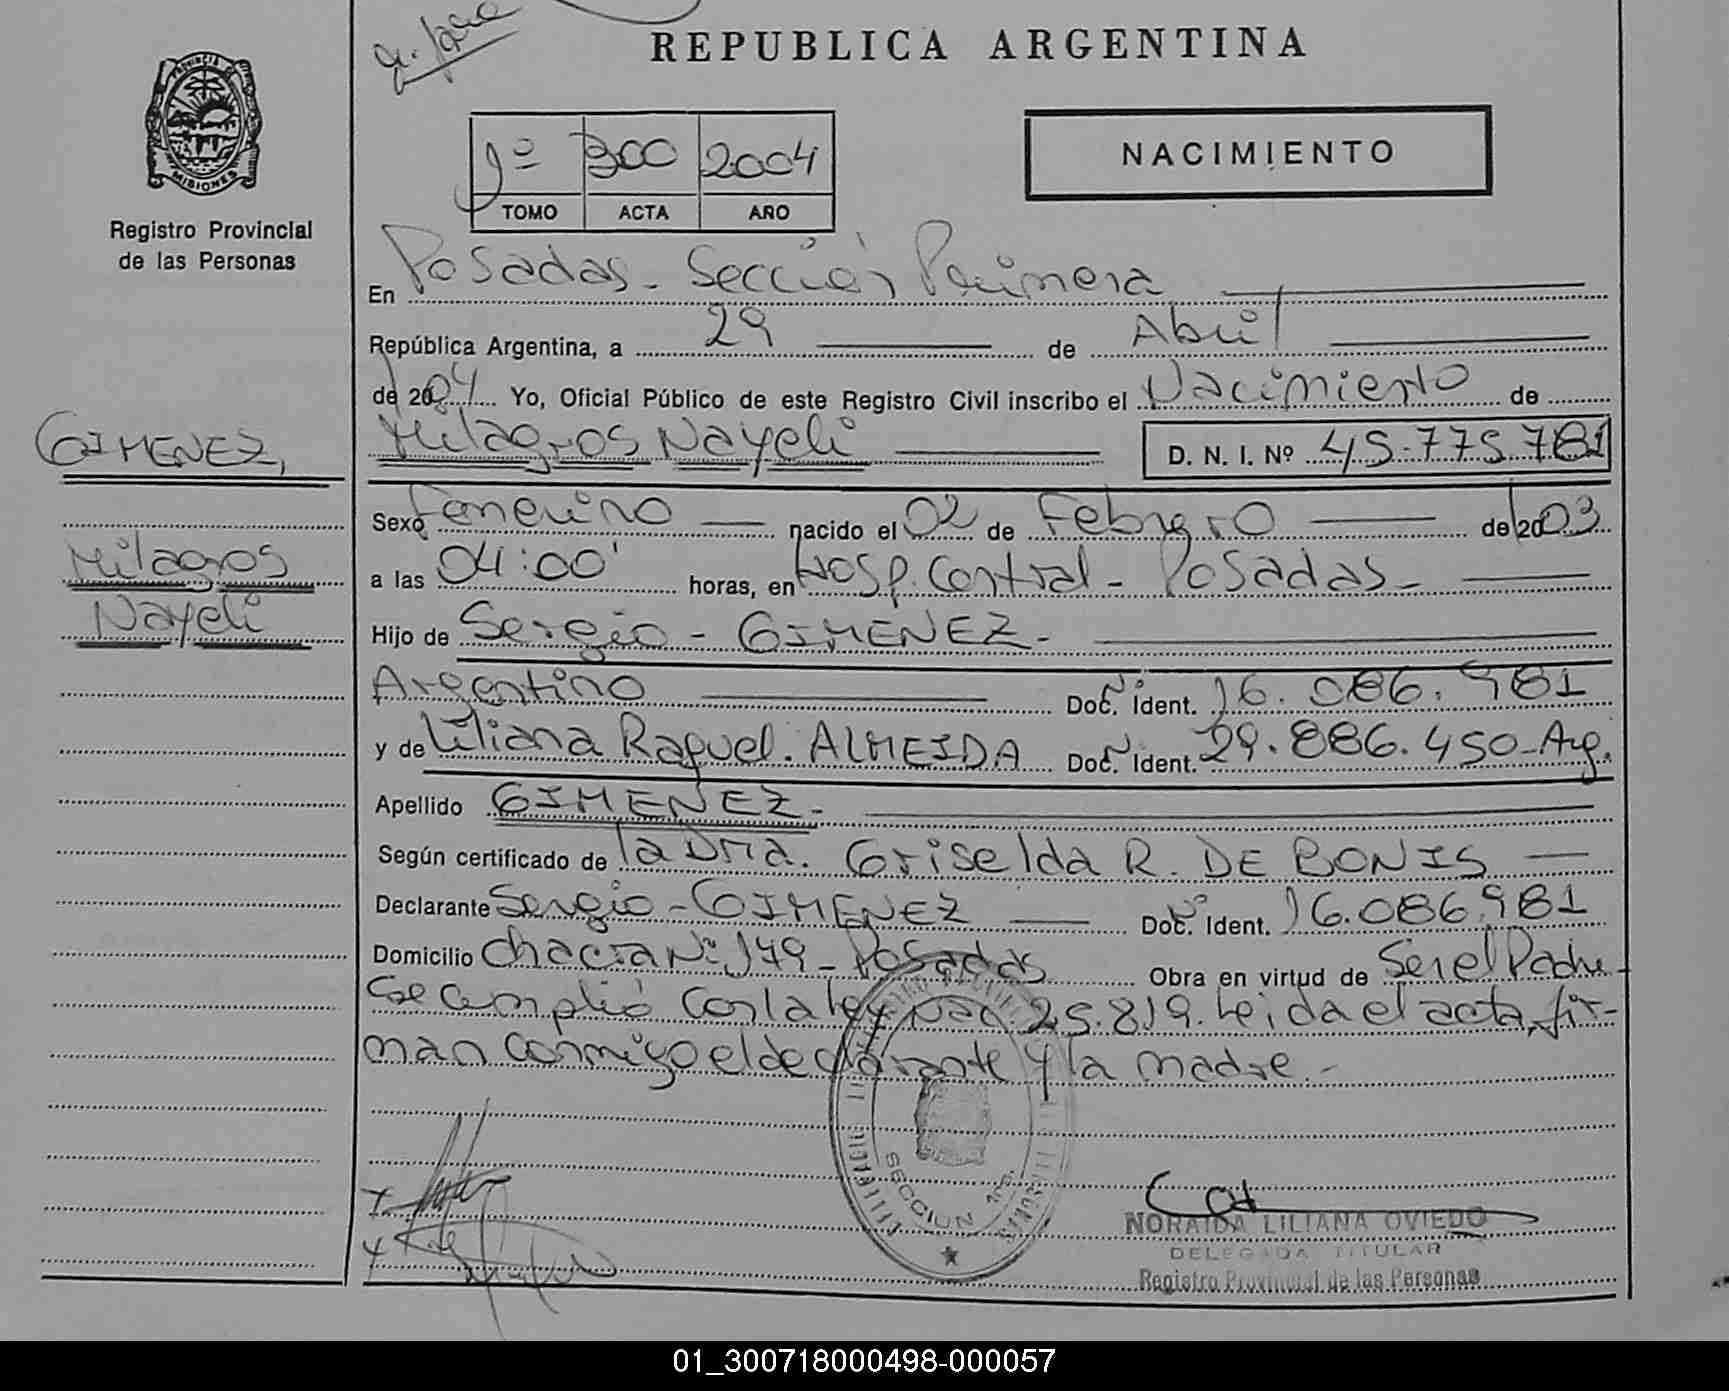 REPUBLICA ARGENTINA
PROVINCIA DE
MISIONES
Registro Provincial
de las Personas
1º 300 2004
TOMO ACTA AÑO
NACIMIENTO
En Posadas - Sección Primera
República Argentina, a 29 de Abril
de 2004 Yo, Oficial Público de este Registro Civil inscribo el Nacimiento de
Milagros Nayeli D. N. I. Nº 45.775.781
GIMENEZ,
Milagros
Nayeli
Sexo Femenino nacido el 02 de Febrero de 2003
a las 04:00' horas, en Hosp. Central - Posadas -
Hijo de Sergio - GIMENEZ -
Argentino Doc. Ident. 16.086.981
y de Liliana Raquel. ALMEIDA Doc. Ident. 29.886.450 - Arg.
Apellido GIMENEZ -
Según certificado de la Dra. Griselda R. DE BONIS
Declarante Sergio - GIMENEZ Doc. Ident. 16.086.981
Domicilio Chacra Nº 149 - Posadas Obra en virtud de Ser el Padre
Se cumplió con la ley Nac. 25.819. Leida el acta, fir-
man conmigo el declarante y la madre. -
SECCION 1ra.
NORAIDA LILIANA OVIEDO
DELEGADA TITULAR
Registro Provincial de las Personas
01_300718000498-000057